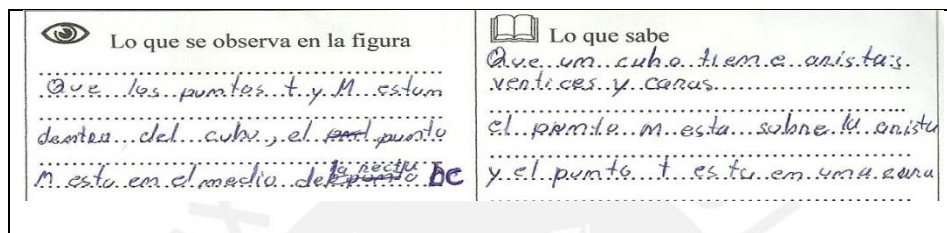 Lo que se observa en la figura
Que los puntos t y M estan
dentro del cubo, el punto
M esta en el medio de la recta BC
Lo que sabe
Que un cubo tiene aristas
vertices y caras
el punto m esta sobre la arista
y el punto t esta en una cara